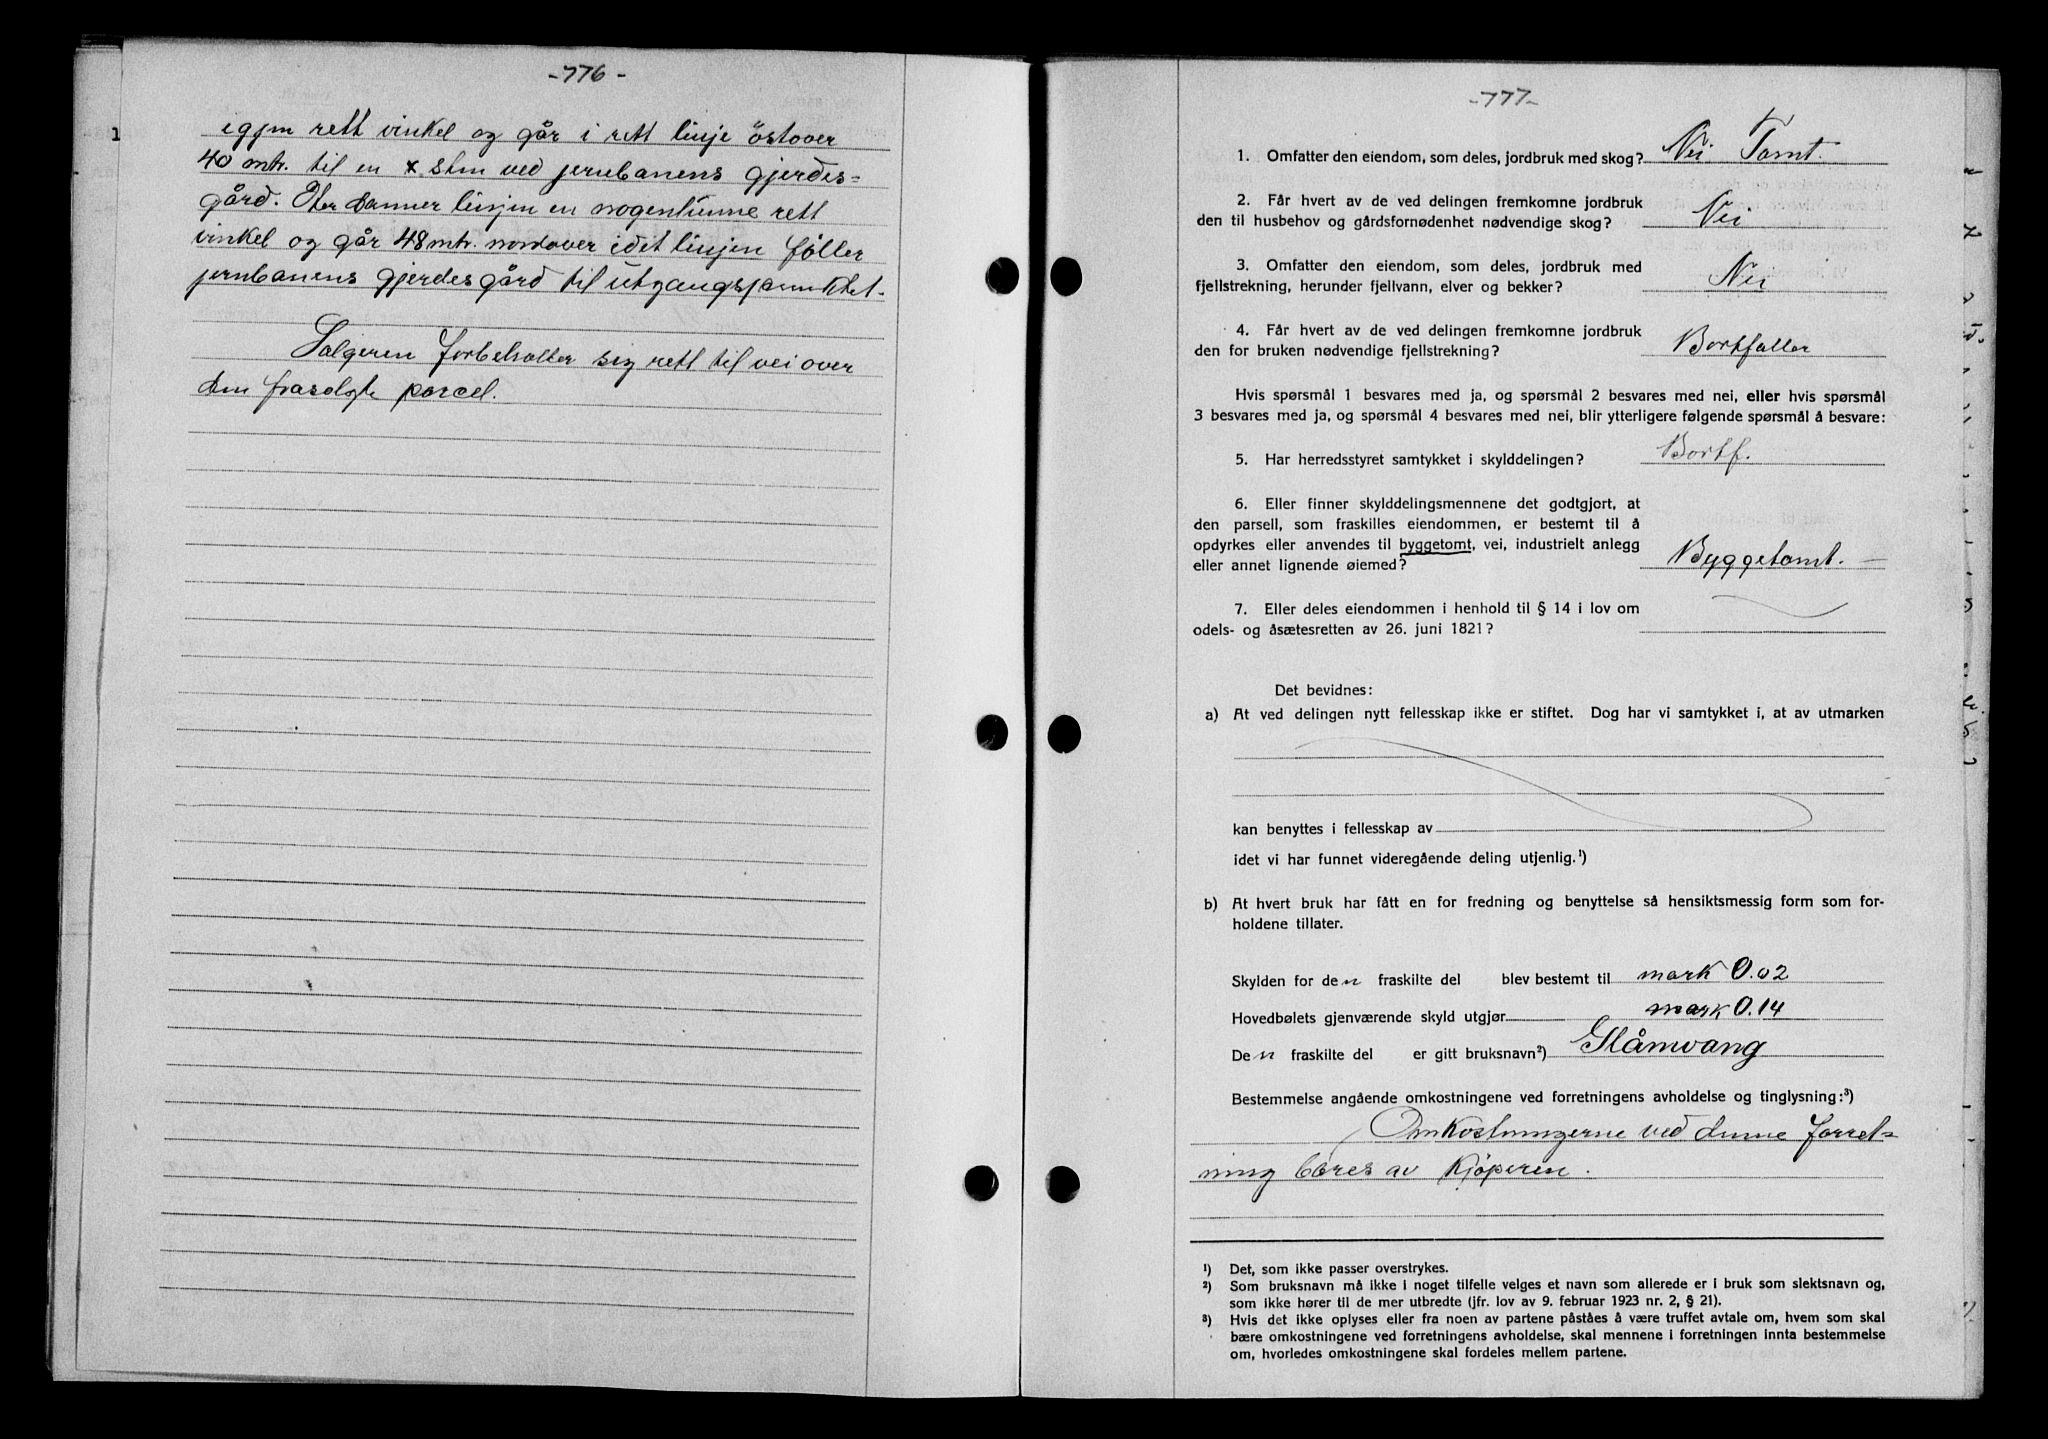 -776-
igjen rett vinkel og går i rett linje östover
40 mtr. til en x sten ved jernbanens gjerdes=
gård. Her danner linjen en nogenlunne rett
vinkel og går 48 mtr. nordover idet linjen föller
jernbanens gjerdesgård til utgangspunktet.
Selgeren forbeholter sig rett til vei over
den frasolgte parcel.
-777-
1. Omfatter den eiendom, som deles, jordbruk med skog? Nei Tomt.
2. Får hvert av de ved delingen fremkomne jordbruk
den til husbehov og gårdsfornødenhet nødvendige skog? Nei
3. Omfatter den eiendom, som deles, jordbruk med
fjellstrekning, herunder fjellvann, elver og bekker? Nei
4. Får hvert av de ved delingen fremkomne jordbruk
den for bruken nødvendige fjellstrekning? Bortfaller
Hvis spørsmål 1 besvares med ja, og spørsmål 2 besvares med nei, eller hvis spørsmål
3 besvares med ja, og spørsmål 4 besvares med nei, blir ytterligere følgende spørsmål å besvare:
5. Har herredsstyret samtykket i skylddelingen? Bortf.
6. Eller finner skylddelingsmennene det godtgjort, at
den parsell, som fraskilles eiendommen, er bestemt til å
opdyrkes eller anvendes til byggetomt, vei, industrielt anlegg
eller annet lignende øiemed? Byggetomt.
7. Eller deles eiendommen i henhold til § 14 i lov om
odels- og åsætesretten av 26. juni 1821?
Det bevidnes:
a) At ved delingen nytt fellesskap ikke er stiftet. Dog har vi samtykket i, at av utmarken
kan benyttes i fellesskap av
idet vi har funnet videregående deling utjenlig.¹)
b) At hvert bruk har fått en for fredning og benyttelse så hensiktsmessig form som for-
holdene tillater.
Skylden for den fraskilte del blev bestemt til mark 0.02
Hovedbølets gjenværende skyld utgjør mark 0.14
Den fraskilte del er gitt bruksnavn²) Glåmvang
Bestemmelse angående omkostningene ved forretningens avholdelse og tinglysning:³)
Omkostningerne ved denne forret=
ning bæres av kjöperen.
¹) Det, som ikke passer overstrykes.
²) Som bruksnavn må ikke i noget tilfelle velges et navn som allerede er i bruk som slektsnavn og,
som ikke hører til de mer utbredte (jfr. lov av 9. februar 1923 nr. 2, § 21).
³) Hvis det ikke oplyses eller fra noen av partene påståes å være truffet avtale om, hvem som skal
bære omkostningene ved forretningens avholdelse, skal mennene i forretningen innta bestemmelse
om, hvorledes omkostningene skal fordeles mellem partene.